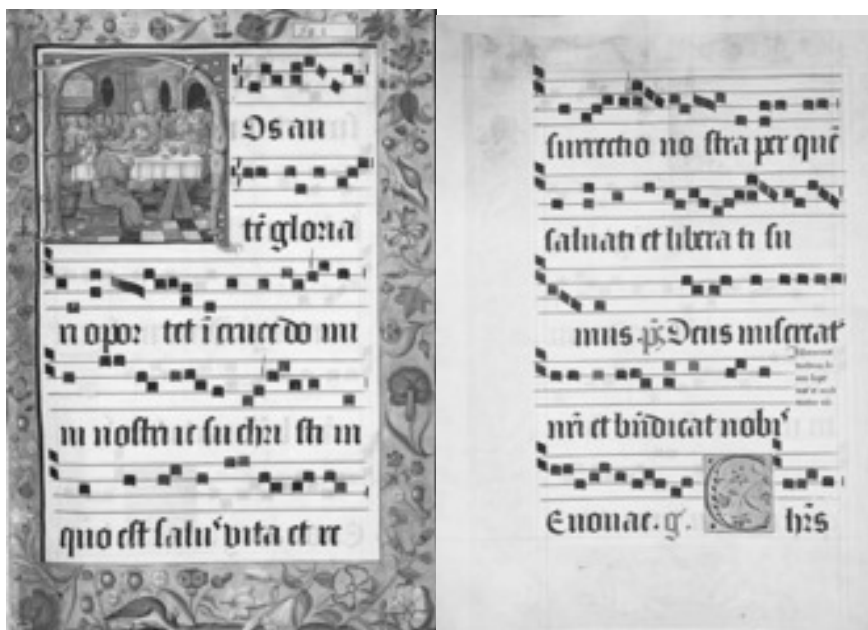 Os au
tē gloria
ri opor tet ī cruce do mi
ni nostri ie su chri sti in
quo est salus vita et re
surrectio no stra per quē
saluati et libera ti su
mus. ps̄ Deus misereat
nr̄i et bn̄dicat nobis
Euouae. g. C hr̄s